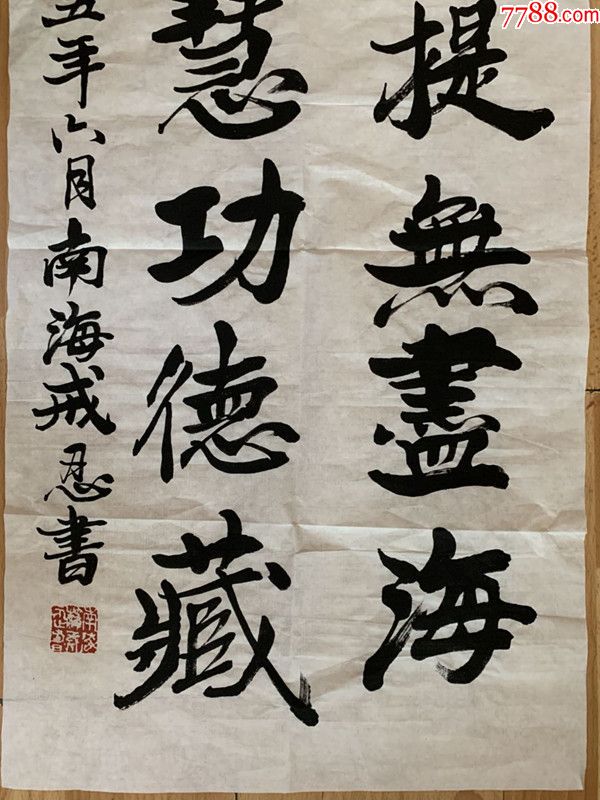 7788.com
提無盡海
慧功德藏
五年六月南海戒忍書